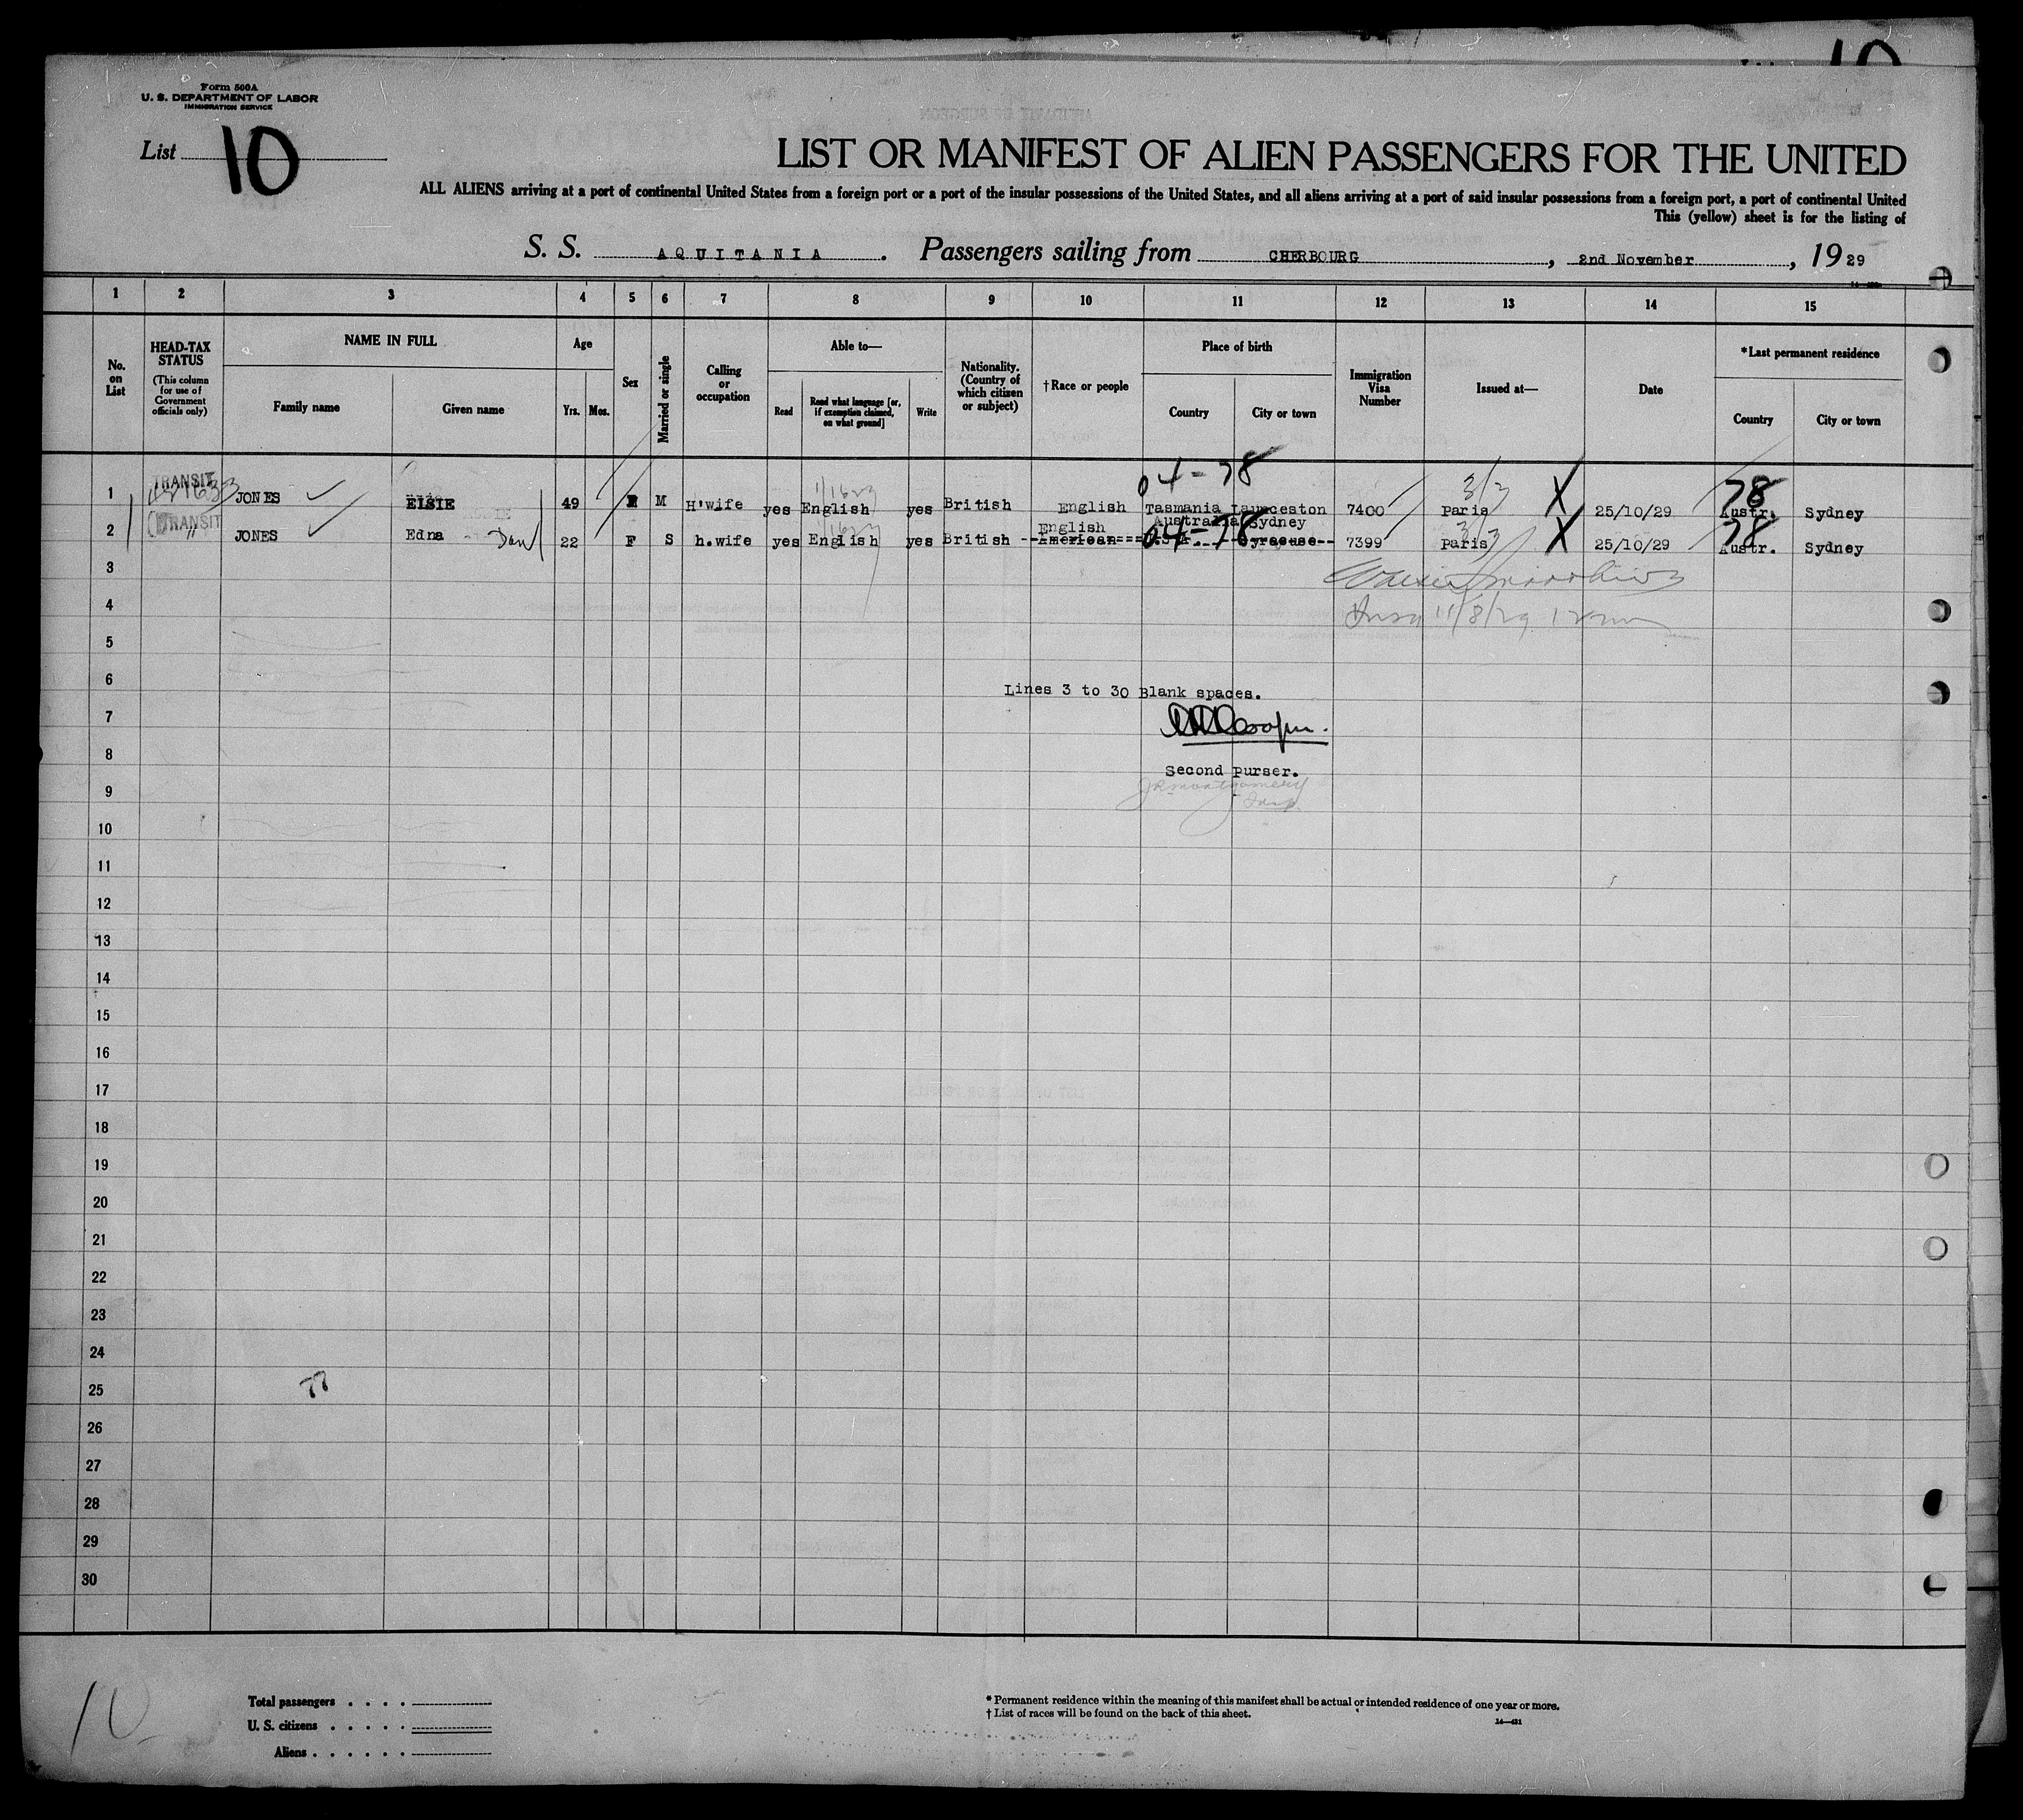 Form 500A
U. S. DEPARTMENT OF LABOR
IMMIGRATION SERVICE
10
List 10
LIST OR MANIFEST OF ALIEN PASSENGERS FOR THE UNITED
ALL ALIENS arriving at a port of continental United States from a foreign port or a port of the insular possessions of the United States, and all aliens arriving at a port of said insular possessions from a foreign port, a port of continental United
This (yellow) sheet is for the listing of
S. S. AQUITANIA . Passengers sailing from CHERBOURG , 2nd November , 19 29
1 2 3 4 5 6 7 8 9 10 11 12 13 14 15
No. on List
HEAD-TAX STATUS (This column for use of Government officials only)
NAME IN FULL
Family name Given name
Age
Yrs. Mos.
Sex
Married or single
Calling or occupation
Able to—
Read
Read what language [or, if exemption claimed, on what ground]
Write
Nationality. (Country of which citizen or subject)
†Race or people
Place of birth
Country City or town
Immigration Visa Number
Issued at—
Date
*Last permanent residence
Country City or town
04-78
1 TRANSIT JONES ELSIE 49 F M H'wife yes English yes British English Tasmania Launceston 7400 Paris X 25/10/29 78 Austr. Sydney
English Australia Sydney
2 TRANSIT JONES Edna 22 F S h.wife yes English yes British American U.S.A. 04-78 Syracuse 7399 Paris X 25/10/29 78 Austr. Sydney
3
4 11/8/29
5
6 Lines 3 to 30 Blank spaces.
7
8 Second purser.
9 JR Montgomery
10
11
12
13
14
15
16
17
18
19
20
21
22
23
24
25 77
26
27
28
29
30
10
Total passengers . . . .
U. S. citizens . . . . .
Aliens . . . . . .
* Permanent residence within the meaning of this manifest shall be actual or intended residence of one year or more.
† List of races will be found on the back of this sheet.
14—431